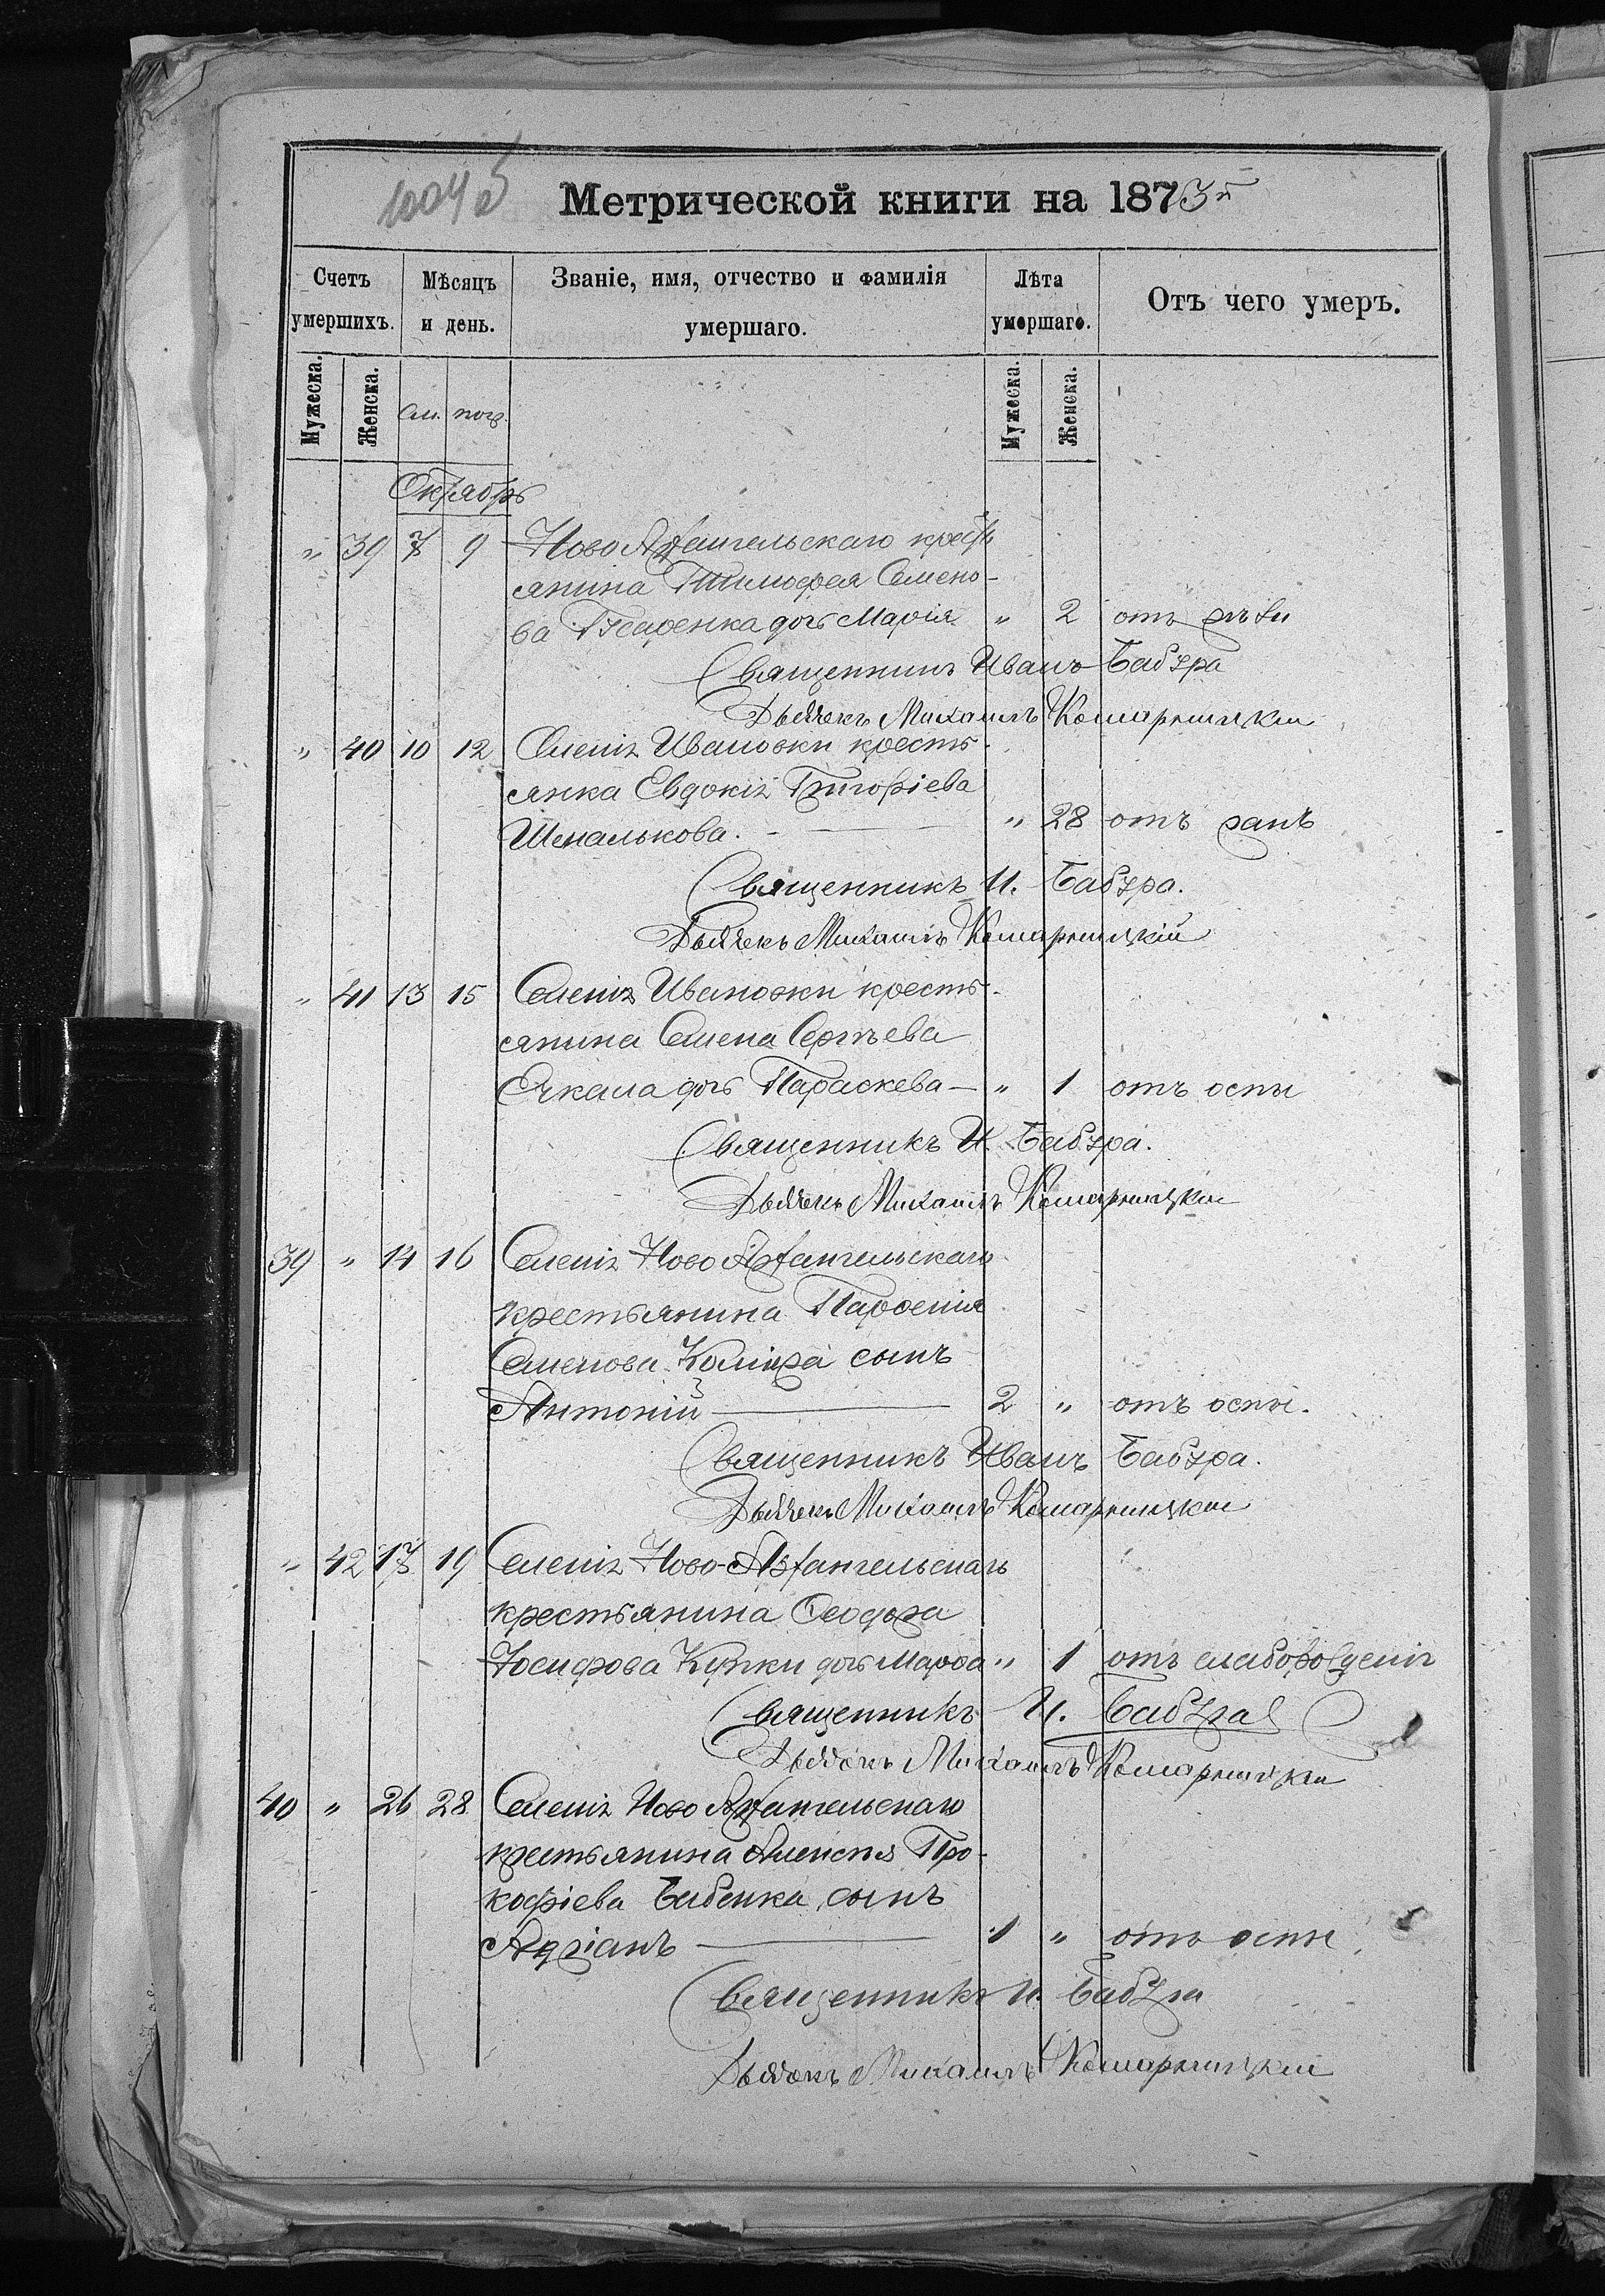 1004 об
Метрической книги на 1873й
Счетъ умершихъ.
Мѣсяцъ и день.
Званіе, имя, отчество и фамилія умершаго.
Лѣта умершаго.
Отъ чего умеръ.
Мужеска. Женска. см. погр. Мужеска. Женска.
Октябрь
" 39 7 9 Ново Архангельскаго кресть
янина Тимофея Семено-
ва дочь Марія " 2 отъ
Священникъ Иванъ Бабура
Дьячекъ Михаилъ Комарницкій
" 40 10 12 Селенія Ивановки кресть-
янка Евдокія Григоріева
Шепалькова. " 28 отъ ранъ
Священникъ И. Бабура.
Дьячекъ Михаилъ Комарницкій
" 41 13 15 Селенія Ивановки кресть-
янина Семена Сергѣева
Очкала дочь Параскева — " 1 отъ оспы
Священникъ И. Бабура.
Дьячекъ Михаилъ Комарницкій
39 " 14 16 Селенія Ново Архангельскаго
крестьянина Парѳенія
Семенова сынъ
Антоній — 2 " отъ оспы.
Священникъ Иванъ Бабура.
Дьячекъ Михаилъ Комарницкій
" 42 17 19 Селенія Ново-Архангельскаго
крестьянина Ѳеодора
Іосифова дочь Марѳа " 1 отъ
Священникъ И. Бабура
Дьячокъ Михаилъ Комарницкій
40 " 26 28 Селенія Ново Архангельскаго
крестьянина Алексія Про-
кофіева Бабенка сынъ
Адріанъ — 1 " отъ оспы
Священникъ И. Бабура
Дьячокъ Михаилъ Комарницкій